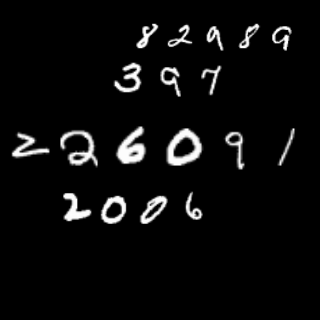 82989
397
226091
2006